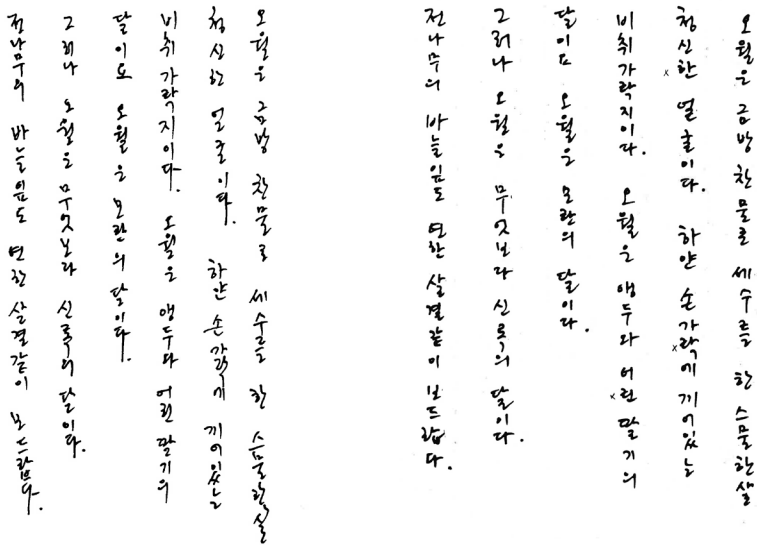 오월은 금방 찬물로 세수를 한 스물한살
청신한 얼굴이다. 하얀 손가락에 끼어있는
비취가락지이다. 오월은 앵두와 어린 딸기의
달이요 오월은 모란의 달이다.
그러나 오월은 무엇보다 신록의 달이다.
전나무의 바늘잎도 연한 살결같이 보드랍다.
오월은 금방 찬물로 세수를 한 스물한살
청신한 얼굴이다. 하얀 손가락에 끼어있는
비취가락지이다. 오월은 앵두와 어린 딸기의
달이요 오월은 모란의 달이다.
그러나 오월은 무엇보다 신록의 달이다.
전나무의 바늘잎도 연한 살결같이 보드랍다.